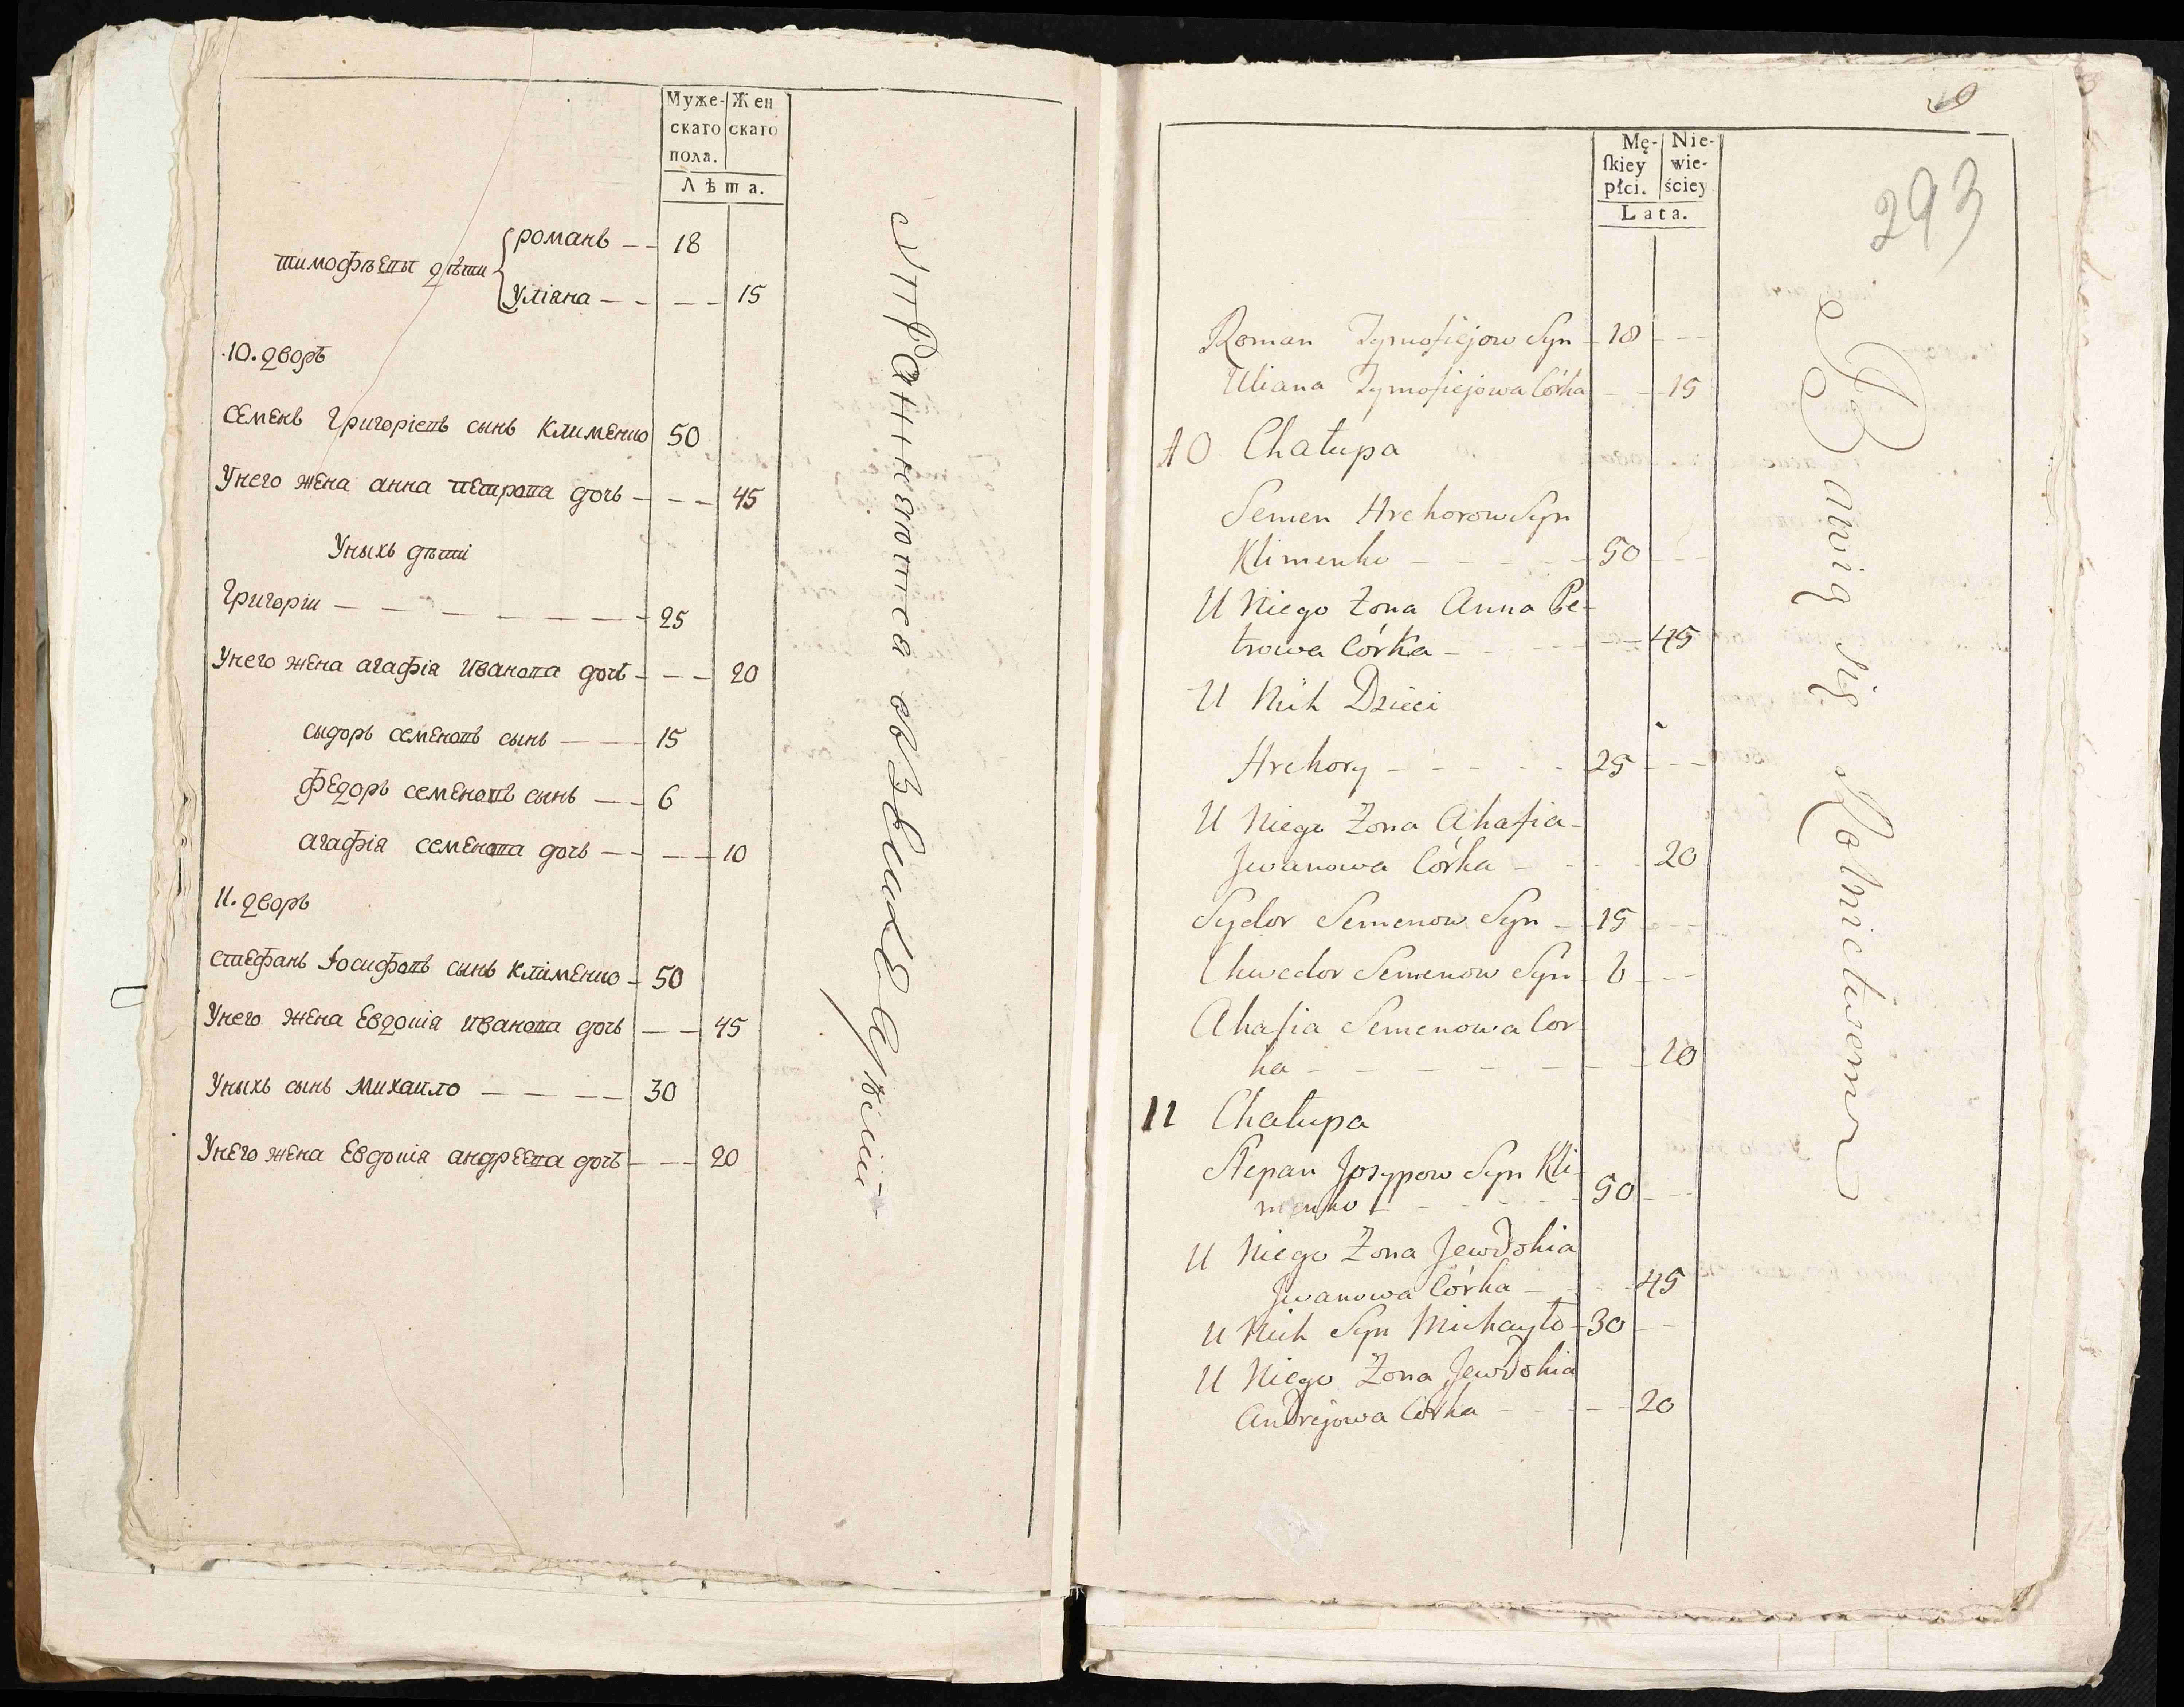 Муже-
скаго
пола.
Жен
скаго
Лѣта.
тимофѣевы дѣти
романъ — — 18
Уліана — — — — 15
10. дворъ
Семенъ Григоріевъ сынъ Клименко 50
Унего жена анна петрова дочь — — — 45
Уныхъ дѣти
Григоріи — — — — — — — 25
Унего жена агафія Иванова дочь — — — 20
сыдоръ семеновъ сынъ — — — 15
Федоръ семеновъ сынъ — — 6
агафія семенова дочь — — — — 10
11. дворъ
стефанъ Іосифовъ сынъ Клименко — 50
Унего жена Евдокія Иванова дочь — — 45
Уныхъ сынъ Михаило — — — — 30
Унего жена Евдокія андреева дочь — — — 20
хлѣбопашествѣ
293
Mę-
ſkiey
płci.
Nie-
wie-
ściey
Lata.
Roman Tymofiejow Syn — 18 — —
Uliana Tymofiejowa Córka — — 15
10 Chałupa
Semen Hrehorow Syn
Klimenko — — — — — 50 — —
U Niego Żona Anna Pe-
trowa Córka — — — — — — 45
U Nich Dzieci
Hrehory — — — — — 25 — — —
U Niego Żona Ahafia
Jwanowa Córka — — — — 20
Sydor Semenow Syn — 15 — — —
Chwedor Semenow Syn — 6 — — —
Ahafia Semenowa Cor
ka — — — — — — — — 10
11 Chałupa
Stepan Josypow Syn Kli
menko — — — — — 50 — —
U Niego Żona Jewdokia
Jwanowa Córka — — — — 45
U Nich Syn Michayło — 30 — —
U Niego Żona Jewdokia
Andrejowa Córka — — — — — 20
Bawią się Rolnictwem